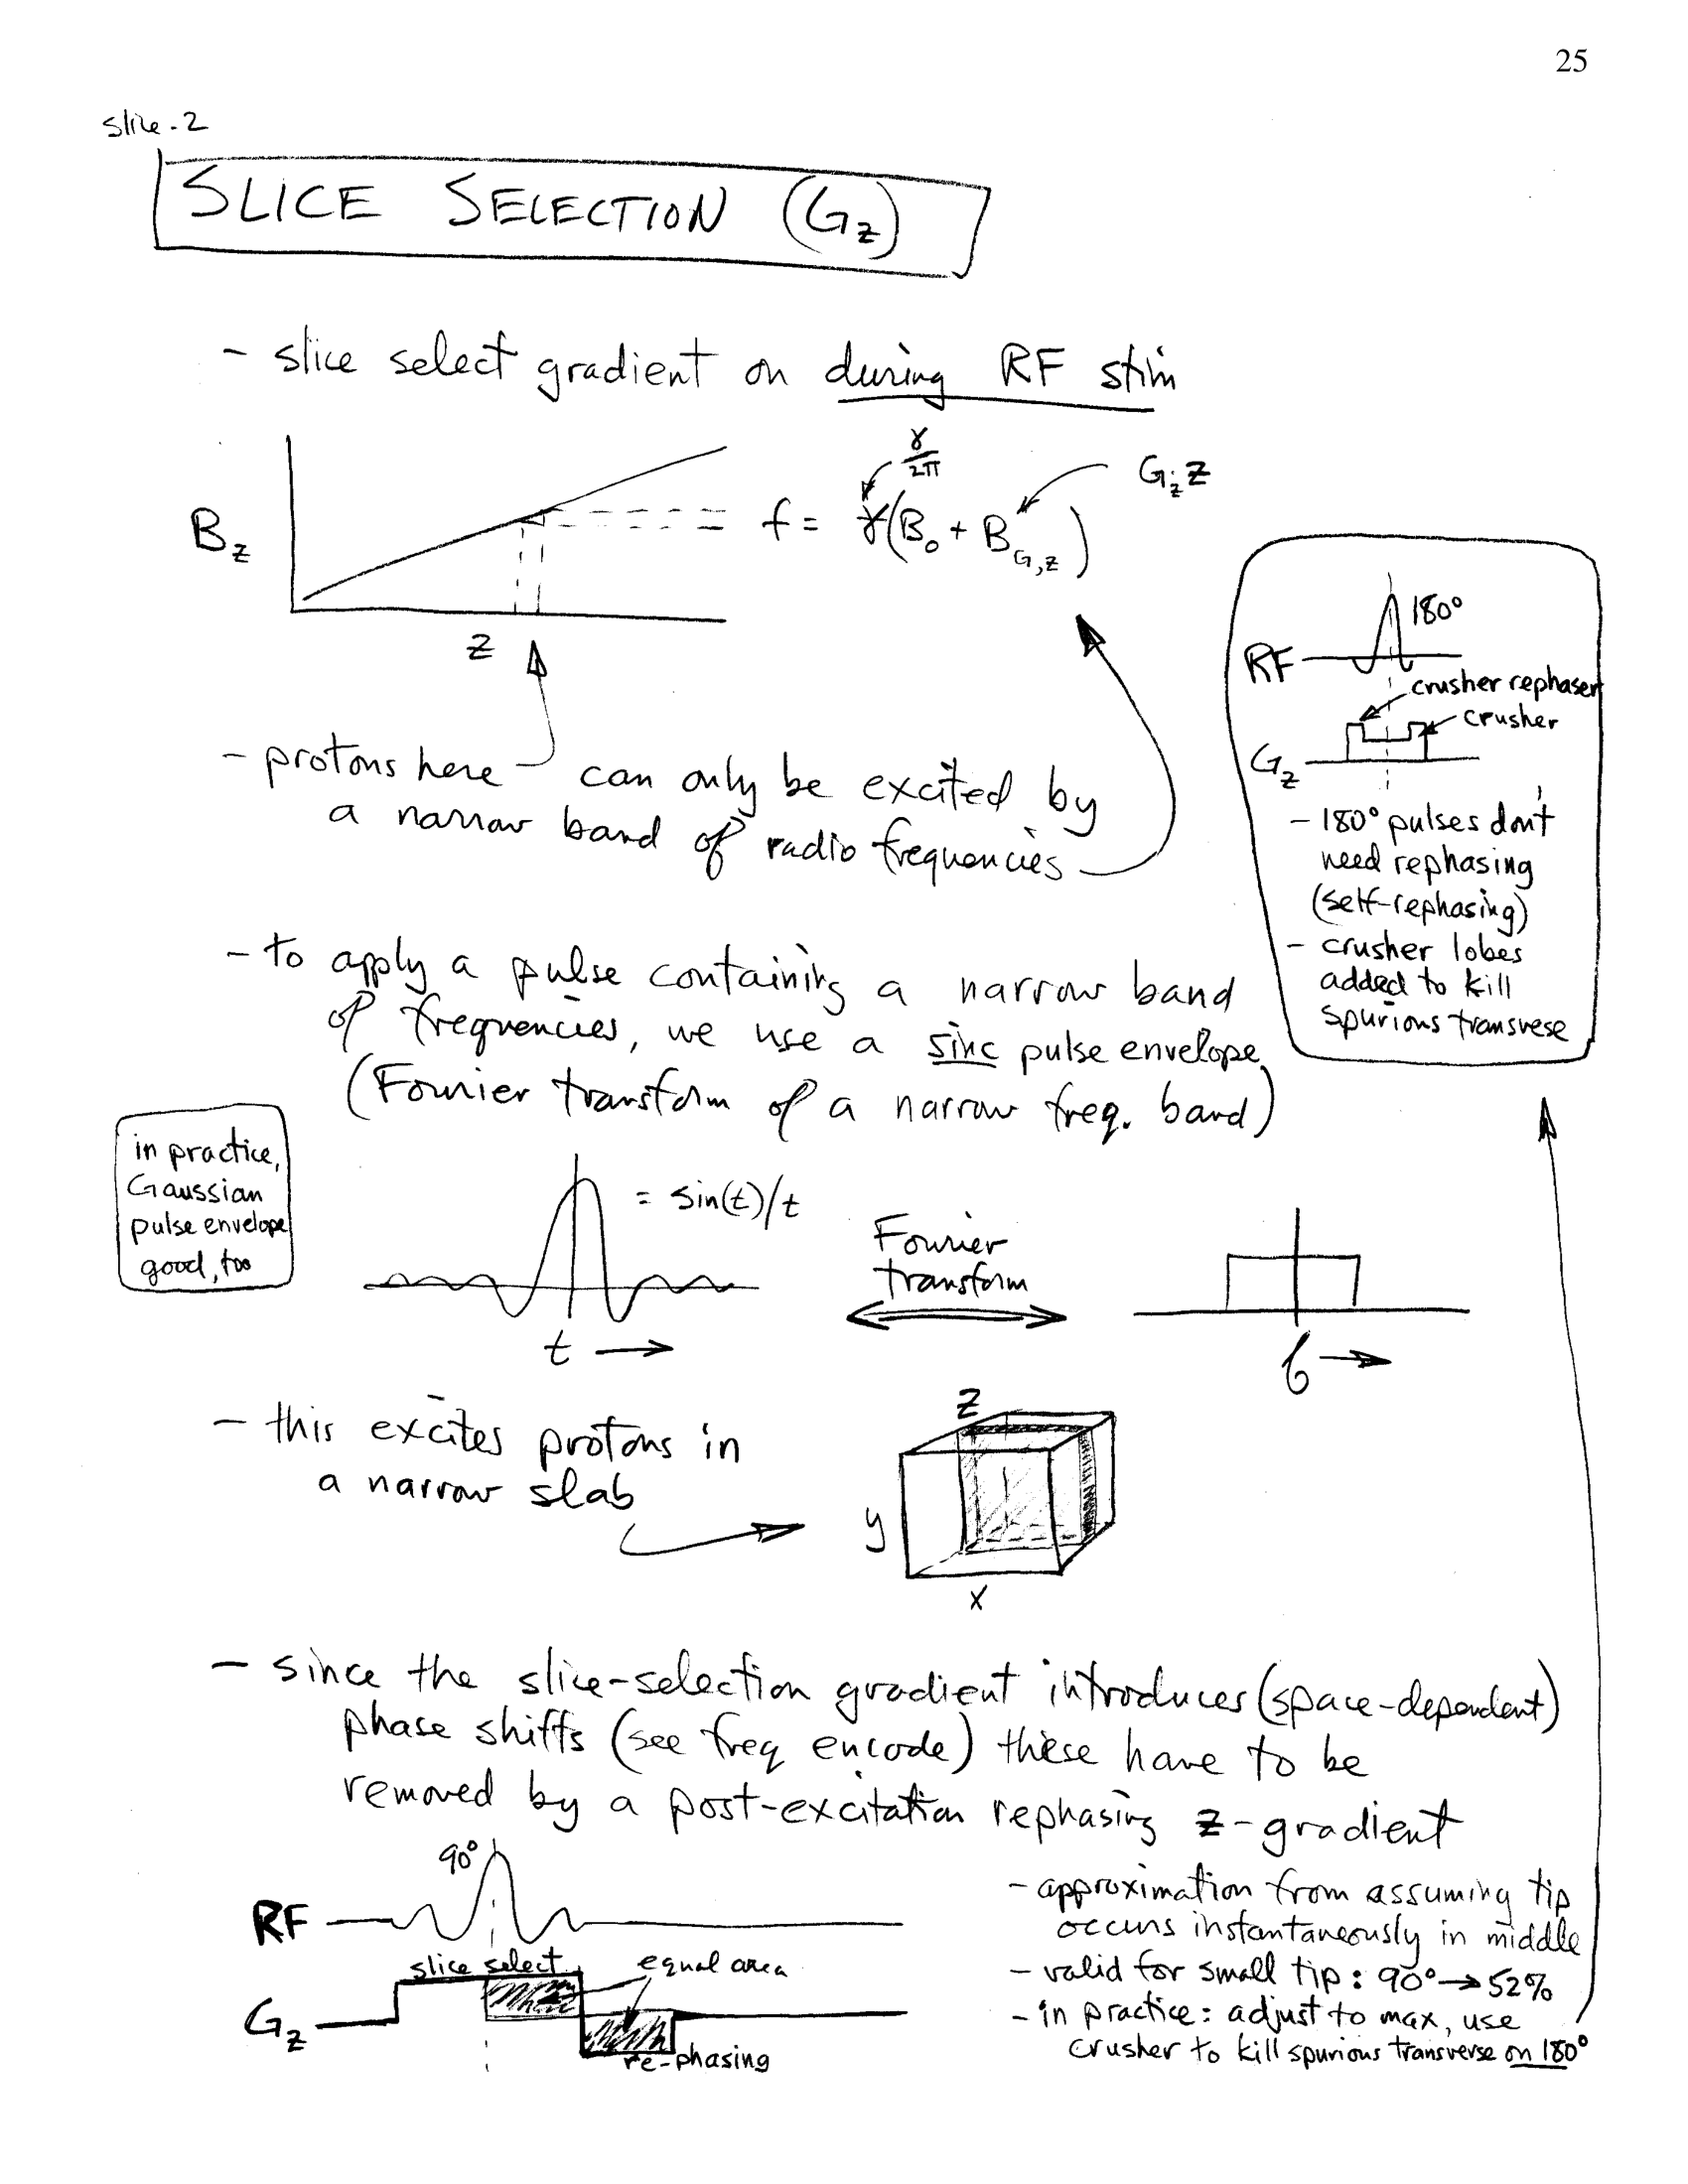 25
slice-2
SLICE SELECTION (Gz)
- slice select gradient on during RF stim
γ/2π
Gz z
Bz
f = γ(B0 + BG,z)
z
- protons here can only be excited by
a narrow band of radio frequencies
180°
RF
crusher rephaser
crusher
Gz
- 180° pulses don't
need rephasing
(self-rephasing)
- crusher lobes
added to kill
spurious transvese
- to apply a pulse containing a narrow band
of frequencies, we use a sinc pulse envelope
(Fourier transform of a narrow freq. band)
in practice,
Gaussian
pulse envelope
good, too
= sin(t)/t
Fourier
transform
t
f
- this excites protons in
a narrow slab
z
y
x
- since the slice-selection gradient introduces (space-dependent)
phase shifts (see freq encode) these have to be
removed by a post-excitation rephasing z-gradient
90°
RF
slice select
equal area
Gz
re-phasing
- approximation from assuming tip
occurs instantaneously in middle
- valid for small tip: 90° → 52%
- in practice: adjust to max, use
crusher to kill spurious transverse on 180°